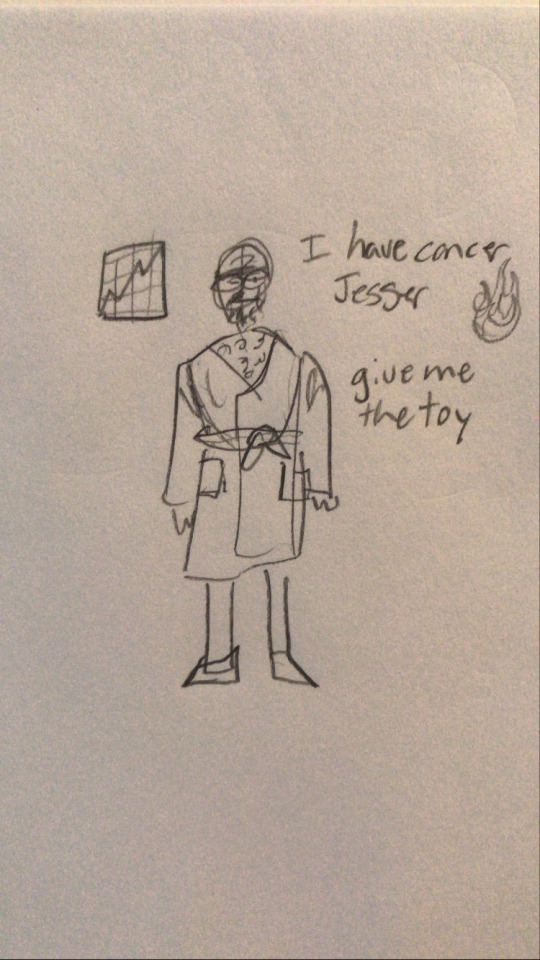 I have concer
Jesser
give me
the toy